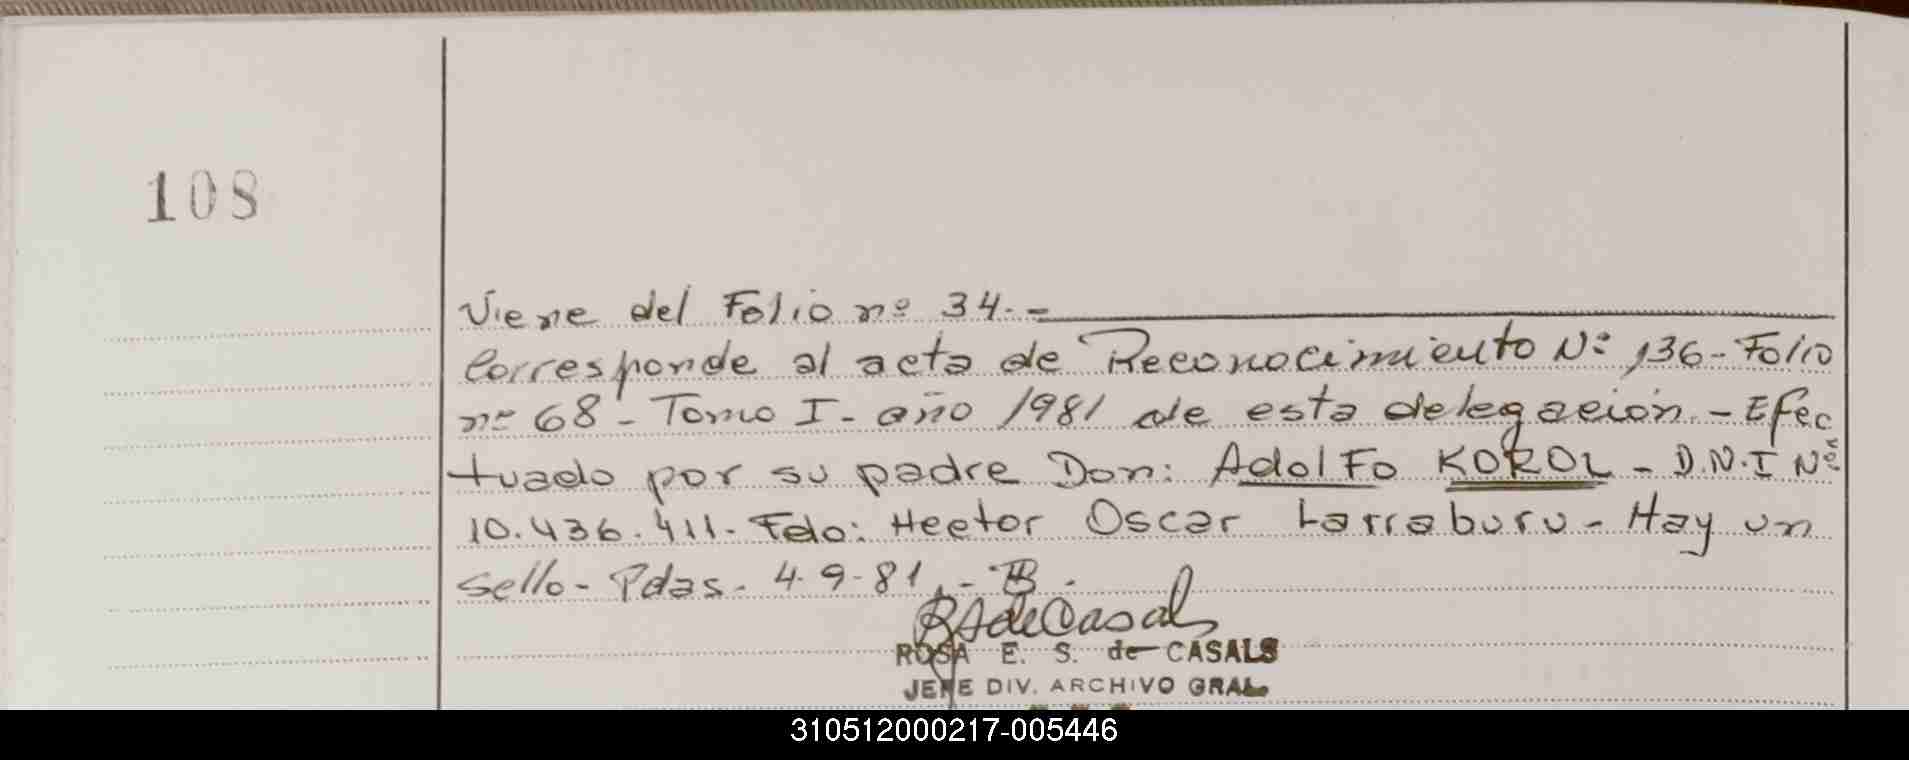 108
Viene del Folio nº 34.-
Corresponde al acta de Reconocimiento Nº 136- Folio
nº 68- Tomo I- año 1981 de esta delegación.- Efec
tuado por su padre Don: Adolfo KOROL - D.N.I Nº
10.436.411- Fdo: Hector Oscar Larraburu- Hay un
sello- Pdas- 4-9-81.-
RSdeCasals
ROSA E. S. de CASALS
JEFE DIV. ARCHIVO GRAL.
310512000217-005446